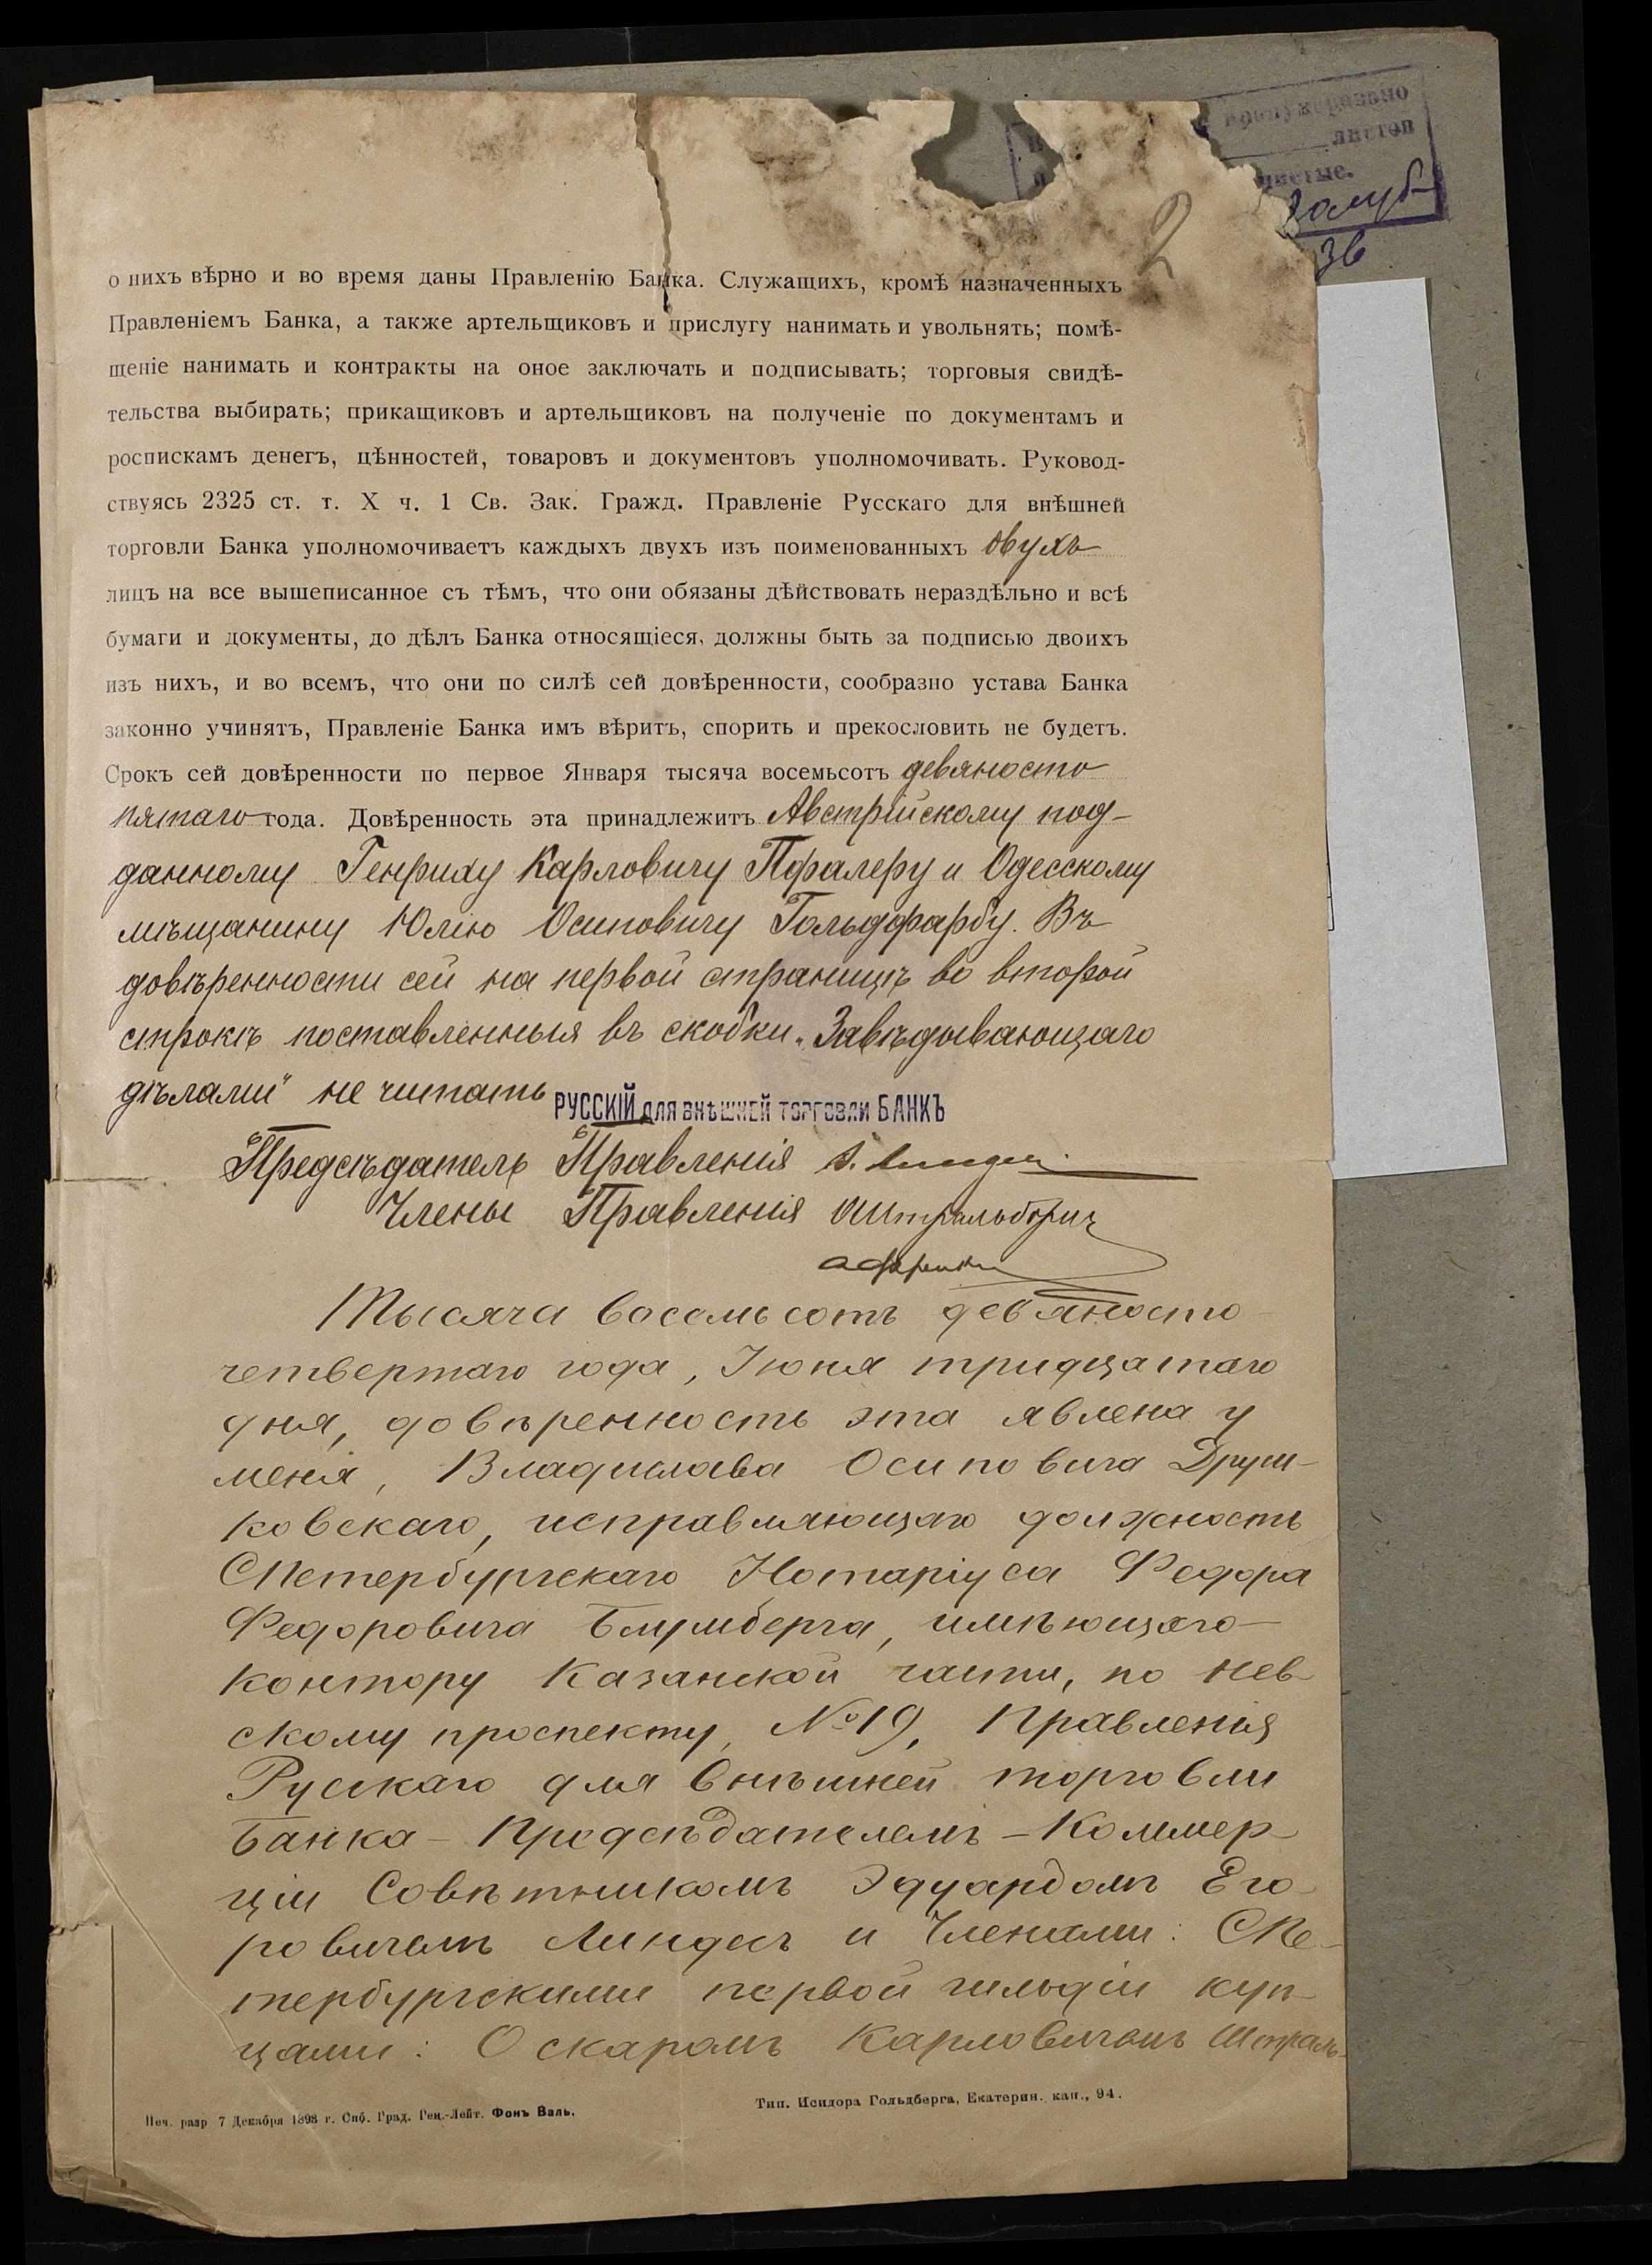 пронумеровано
листов
чистые.
36
2
о нихъ вѣрно и во время даны Правленію Банка. Служащихъ, кромѣ назначенныхъ
Правленіемъ Банка, а также артельщиковъ и прислугу нанимать и увольнять; помѣ-
щеніе нанимать и контракты на оное заключать и подписывать; торговыя свидѣ-
тельства выбирать; прикащиковъ и артельщиковъ на полученіе по документамъ и
роспискамъ денегъ, цѣнностей, товаровъ и документовъ уполномочивать. Руковод-
ствуясь 2325 ст. т. X ч. 1 Св. Зак. Гражд. Правленіе Русскаго для внѣшней
торговли Банка уполномочиваетъ каждыхъ двухъ изъ поименованныхъ двухъ
лицъ на все вышеписанное съ тѣмъ, что они обязаны дѣйствовать нераздѣльно и всѣ
бумаги и документы, до дѣлъ Банка относящіеся, должны быть за подписью двоихъ
изъ нихъ, и во всемъ, что они по силѣ сей довѣренности, сообразно устава Банка
законно учинятъ, Правленіе Банка имъ вѣритъ, спорить и прекословить не будетъ.
Срокъ сей довѣренности по первое Января тысяча восемьсотъ девяносто
пятаго года. Довѣренность эта принадлежитъ Австрійскому под-
данному Генриху Карловичу Пфалеру и Одесскому
мѣщанину Юлію Осиповичу Гольдфарбу. Въ
довѣренности сей на первой страницѣ во второй
строкѣ поставленныя въ скобки „Завѣдывающаго
дѣлами" не читать
РУССКІЙ для внѣшней торговли БАНКЪ
Предсѣдатель Правленія
Члены Правленія
Тысяча восемьсотъ девяносто
четвертаго года, Іюня тридцатаго
дня, довѣренность эта явлена у
меня, Владислава Осиповича Друш-
ковскаго, исправляющаго должность
СПетербургскаго Нотаріуса Федора
Федоровича Блумберга, имѣющаго
контору Казанской части, по Нев-
скому проспекту, № 19, Правленія
Русскаго для внѣшней торговли
Банка – Предсѣдателемъ – Коммер-
ціи Совѣтникомъ Эдуардомъ Его-
ровичемъ Линдесъ и Членами: СПе-
тербургскими первой гильдіи куп-
цами: Оскаромъ Карловичемъ Штраль-
Печ. разр 7 Декабря 1893 г. Спб. Град. Ген.-Лейт. Фонъ Валь.
Тип. Исидора Гольдберга, Екатерин. кан., 94.